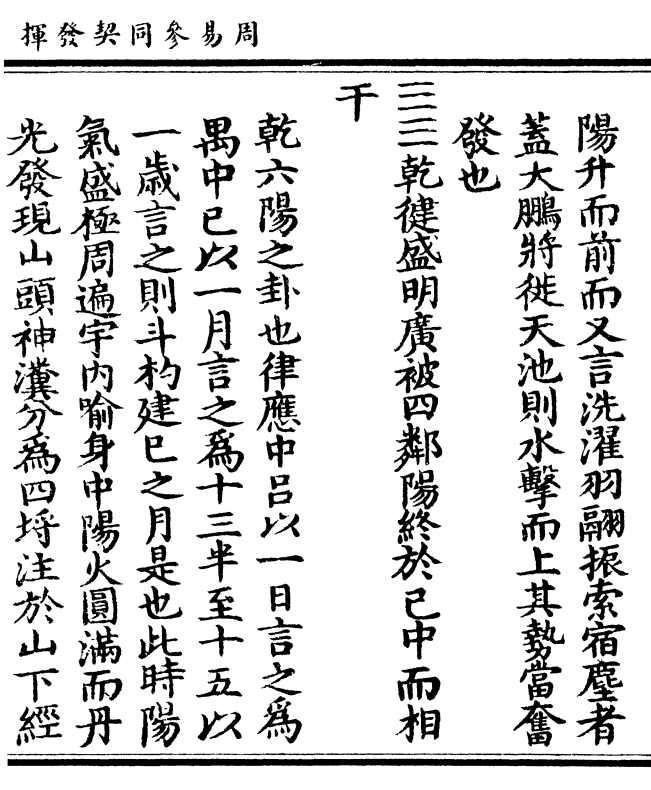 周易參同契發揮
陽升而前而又言洗濯羽翮振索宿塵者
蓋大鵬將徙天池則水擊而上其勢當奮
發也
☰☰乾健盛明廣被四鄰陽終於巳中而相
干
乾六陽之卦也律應中呂以一日言之爲
禺中巳以一月言之爲十三半至十五以
一歲言之則斗杓建巳之月是也此時陽
氣盛極周遍宇内喻身中陽火圓滿而丹
光發現山頭神瀵分爲四埒注於山下經